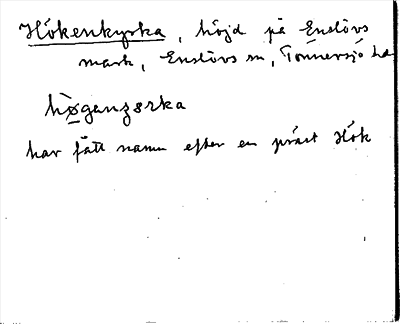 Hökenkyrka, höjd på Enslövs
mark, Enslövs sn, Tönnersjö hd
hø̀ganzɛrka
har fått namn efter en präst Hök